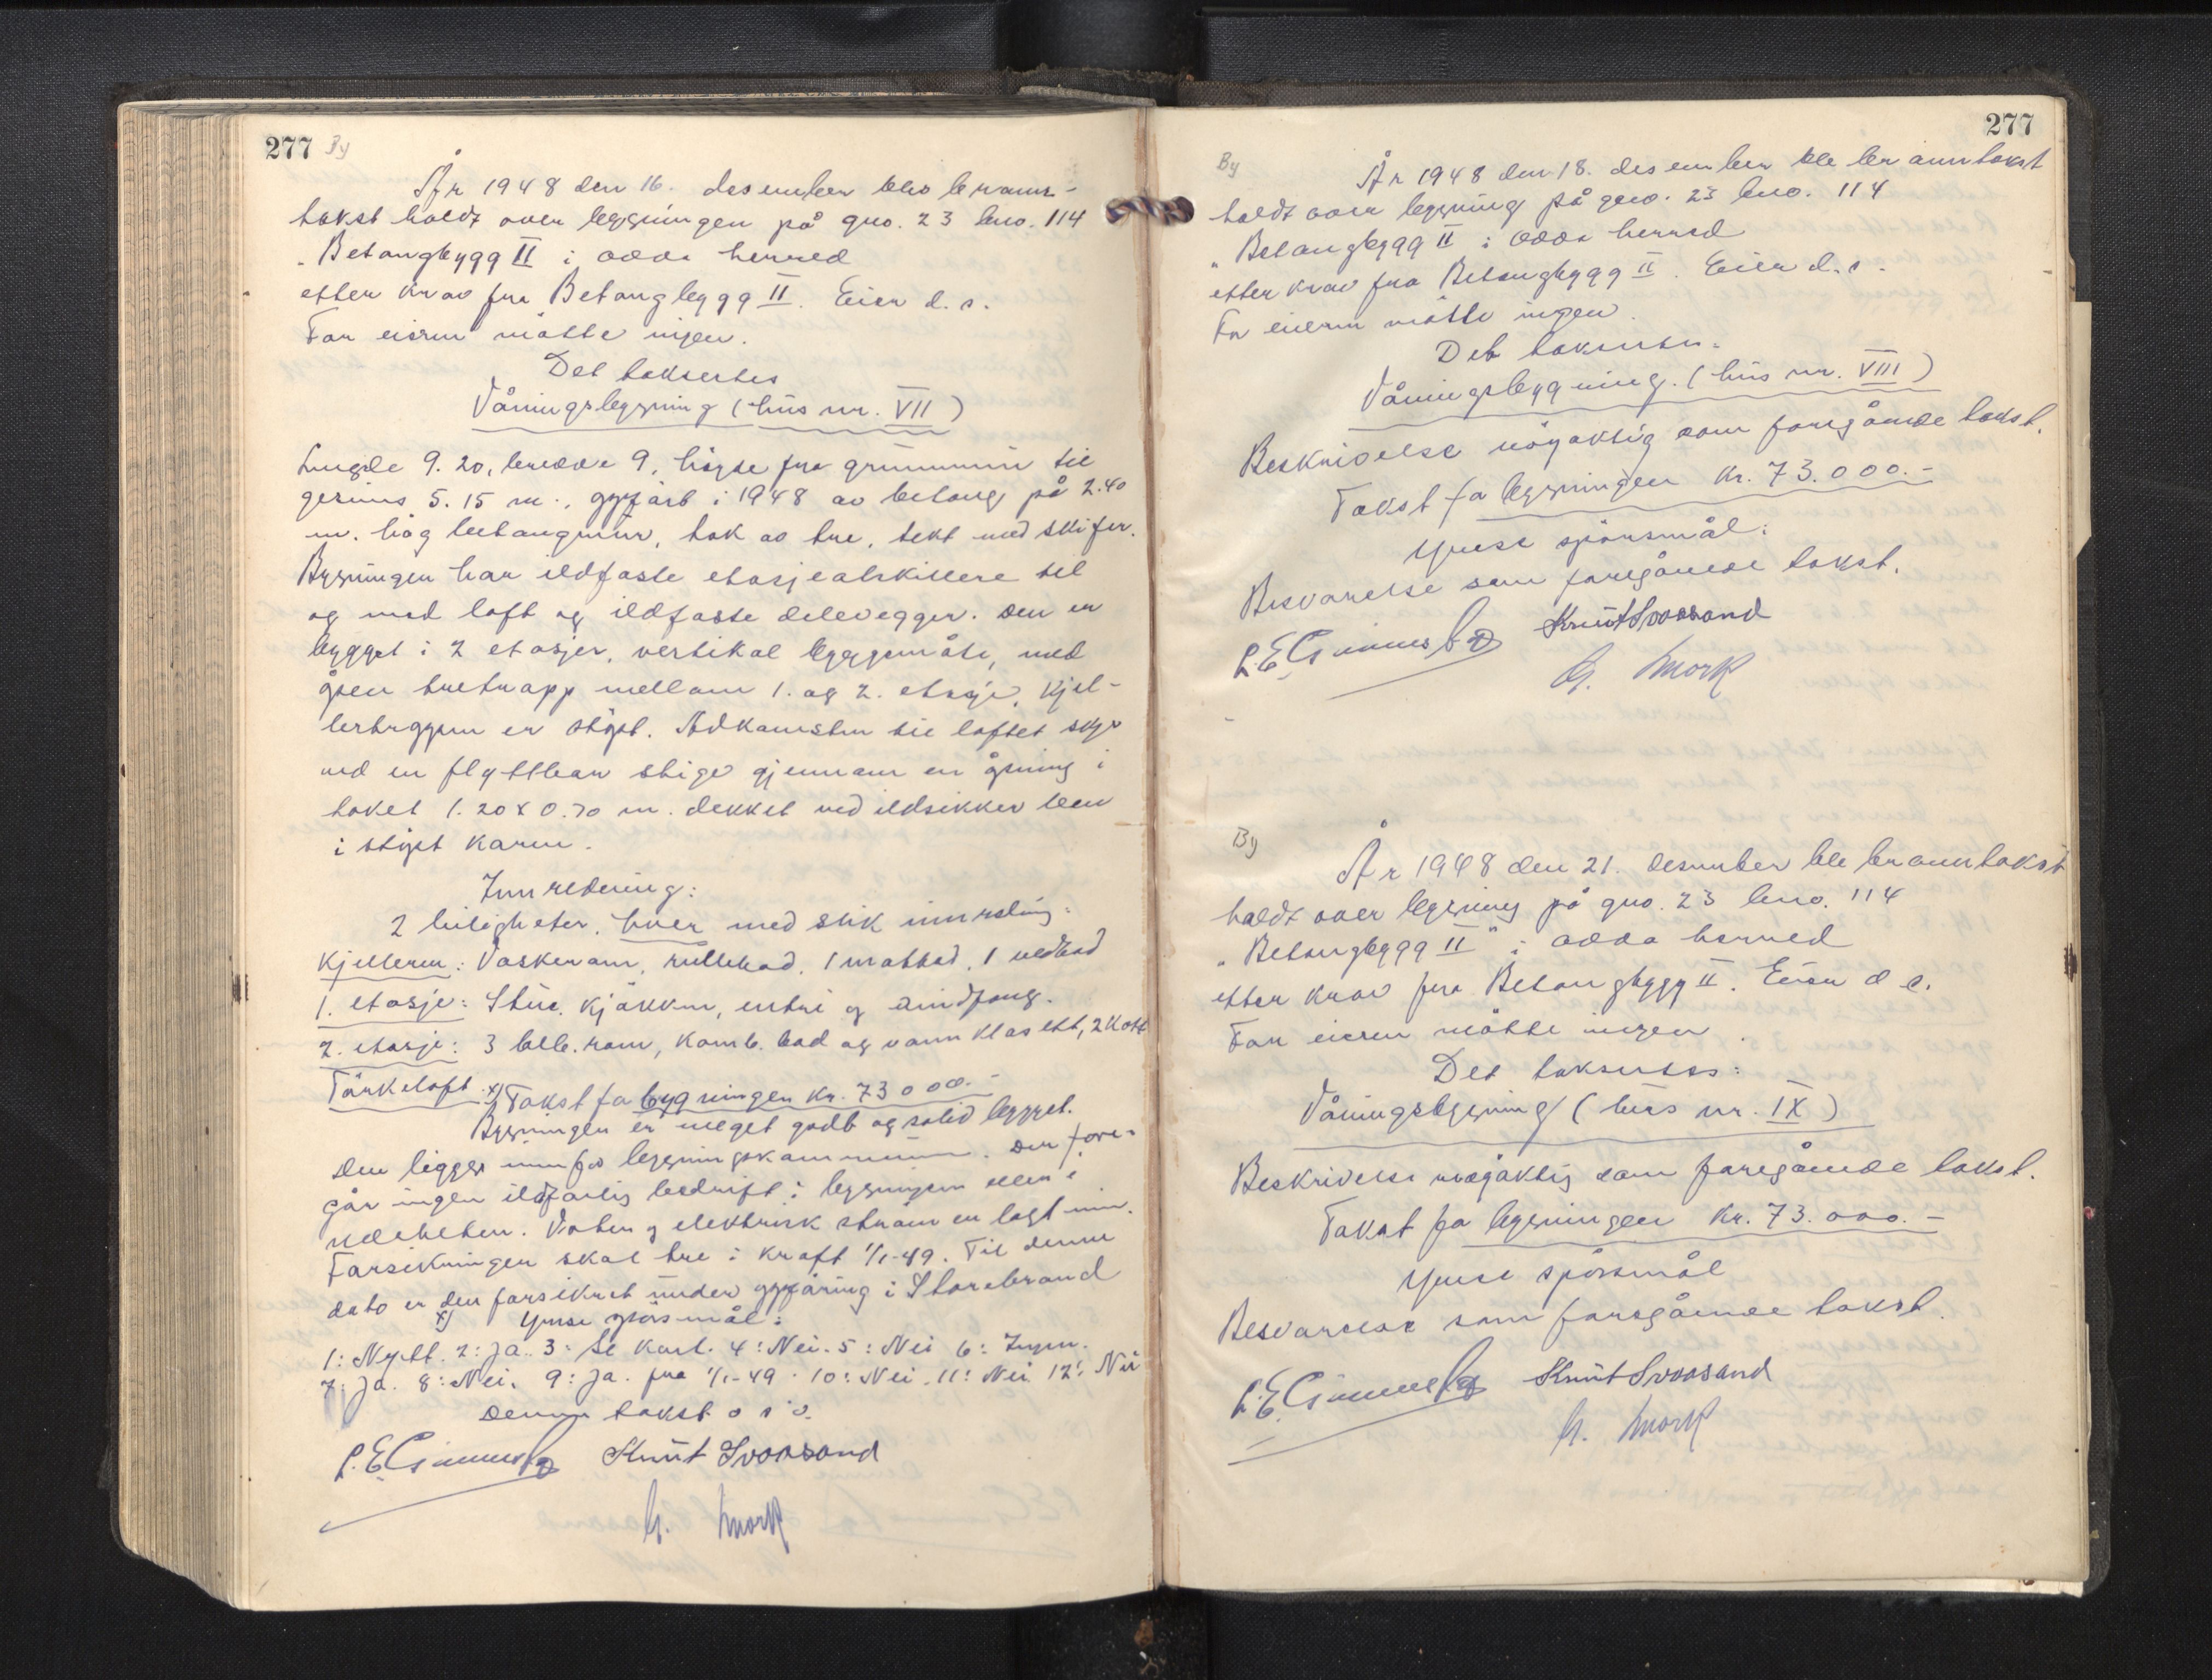 277 By
År 1948 den 16. desember blev brann-
takst holdt over bygningen på gno. 23 bno. 114
"Betongbygg II i Odda herred
etter krav fra Betongbygg II. Eier d. s.
For eieren møtte ingen.
Det taksertes
Våningsbygning (hus nr. VII)
Lengde 9.20, bredde 9, høyde fra grunnmur til
gesims 5.15 m., oppført i 1948 av betong på 2.40
m. høg betongmur, tak av tre, tekt med skifer.
Bygningen har ildfaste etasjeatskillere til
og med loft og ildfaste delevegger. Den er
bygget i 2 etasjer, vertikal byggemåte, med
åpen tretrapp mellom 1. og 2. etasje. Kjel-
lertrappen er støpt. Adkomsten til loftet skjer
ved en flyttbar stige gjennom en åpning i
taket 1.20 x 0.70 m. dekket ved ildsikker lem
i støpt karm.
Innredning:
2 leiligheter, hver med slik innredning:
Kjelleren: Vaskerom, rullebod, 1 matbod, 1 vedbod
1. etasje: Stue, kjøkken, entre og vindfang.
2. etasje: 3 bebo. rom, komb. bad og vannklosett, 2 kott
Tørkeloft. x) Takst for bygningen kr. 73000.-
Bygningen er meget godt og solid bygget.
Den ligger innfor bygningskommunen. Der fore-
går ingen ildfarlig bedrift i bygningen eller i
nærheten. Vann og elektrisk strøm er lagt inn.
Forsikringen skal tre i kraft 1/1-49. Til denne
dato er den forsikret under oppføring i Storebrand
x) Ymse spørsmål:
1: Nytt. 2: Ja. 3: Se kart. 4: Nei. 5: Nei 6: Ingen.
7: Ja. 8: Nei. 9: Ja. fra 1/1-49. 10: Nei. 11: Nei 12: Nei
Denne takst o s v.
Knut Svaasand
G. Mork
277
By
År 1948 den 18. desember ble branntakst
holdt over bygning på gno. 23 bno. 114
"Betongbygg II i Odda herred
etter krav fra Betongbygg II. Eier d. s.
For eieren møtte ingen.
Det taksertes:
Våningsbygning. (hus nr. VIII)
Beskrivelse nøyaktig som foregående takst.
Takst for bygningen kr. 73.000.-
Ymse spørsmål:
Besvarelse som foregående takst.
Knut Svaasand
G. Mork
By
År 1948 den 21. desember ble branntakst
holdt over bygning på gno. 23 bno. 114
"Betongbygg II" i Odda herred
etter krav fra Betongbygg II. Eier d s.
For eieren møtte ingen.
Det taksertes:
Våningsbygning (hus nr. IX)
Beskrivelse nøyaktig som foregående takst.
Takst for bygningen kr. 73.000.-
Ymse spørsmål
Besvarelse som foregående takst.
Knut Svaasand
G. Mork